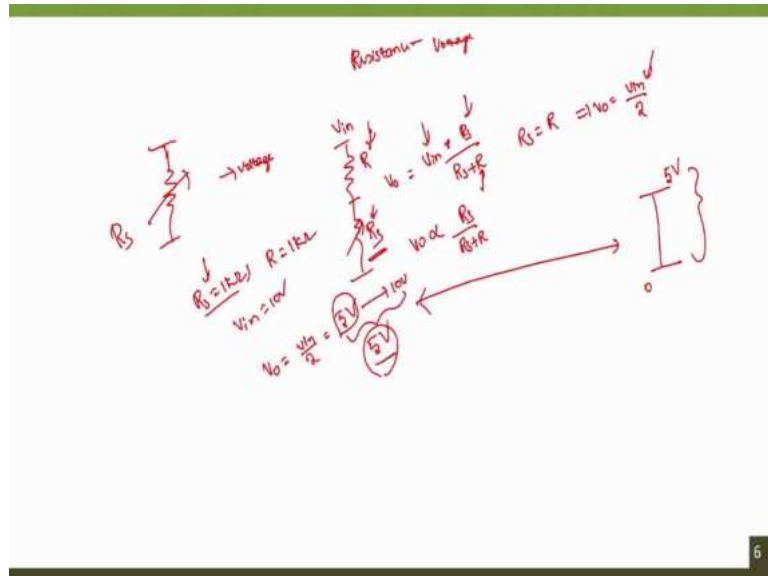 Resistance - Voltage
Vin
R
→ voltage
Rs
Vo = Vin * Rs / Rs+R
Rs = R ⇒ Vo = Vin/2
Rs
Vo ∝ Rs / Rs+R
Rs = 1kΩ, R = 1kΩ
Vin = 10V
Vo = Vin/2 = 5V → 10V
5V
5V
0
6